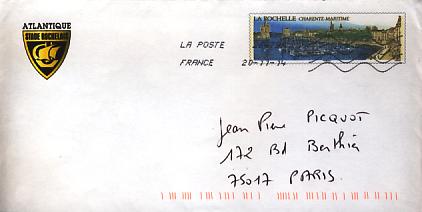 ATLANTIQUE
STADE ROCHELAIS
LA ROCHELLE CHARENTE-MARITIME
LA POSTE
FRANCE 20-11-14
Jean Pierre PICQUOT
172 Bd Berthier
75017 PARIS